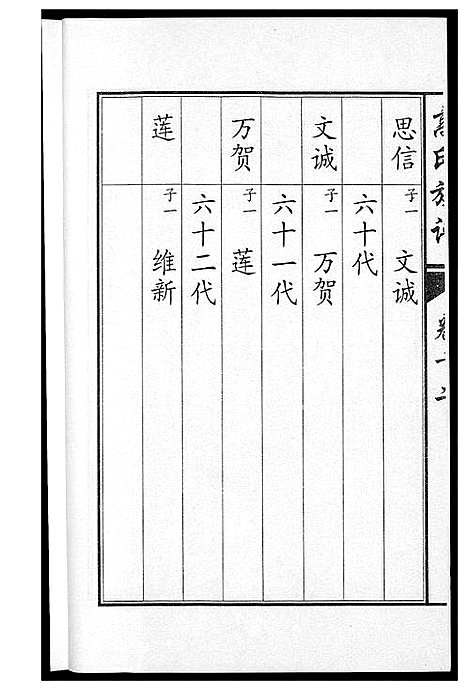 高氏族谱
卷一二
思信 子一 文诚
六十代
文诚 子一 万贺
六十一代
万贺 子一 莲
六十二代
莲 子一 维新